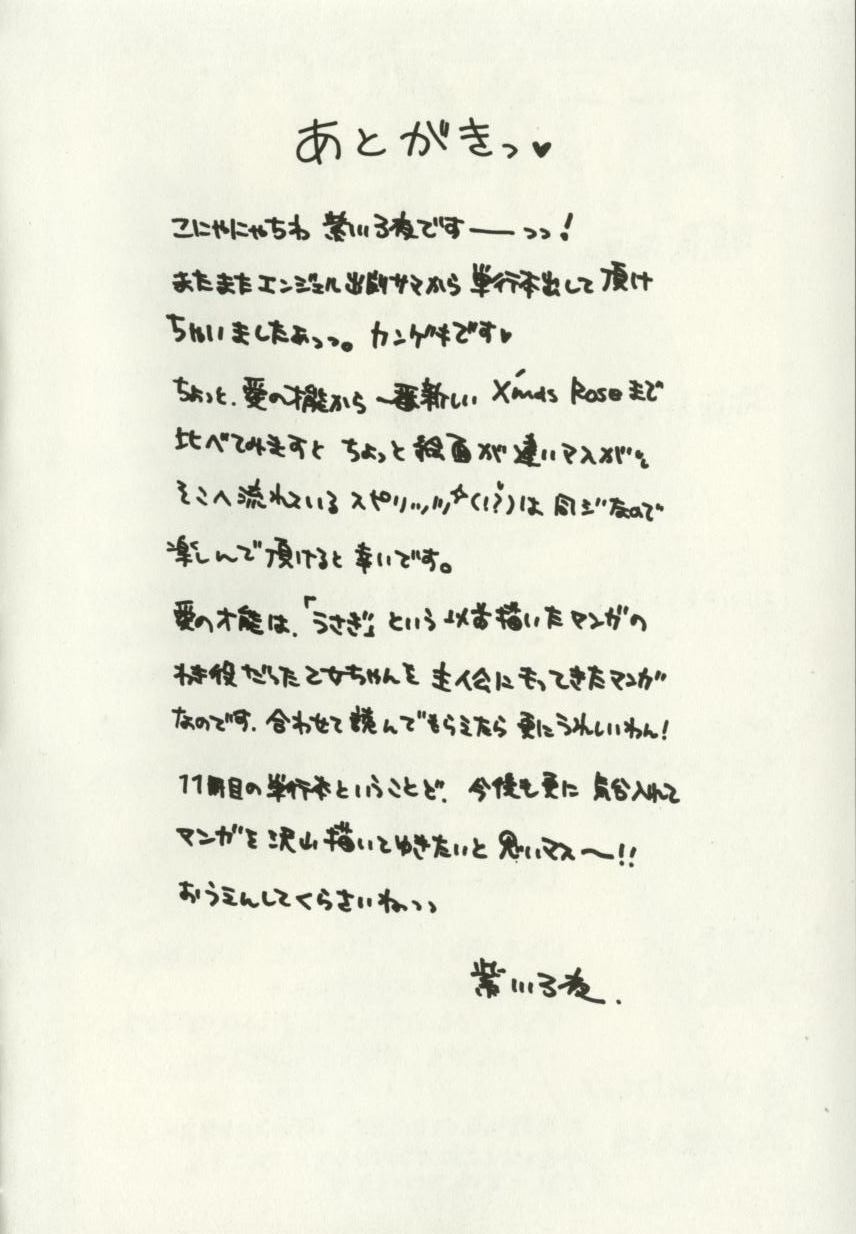 あとがきっ♥
こにゃにゃちわ 紫いろ夜ですーーっっ!
またまたエンジェル出版サマから 単行本出して頂け
ちゃいましたぁっっ。カンゲキです♥
ちょっと、愛の才能から 一番新しい X'mas Roseまで
比べてみますと ちょっと絵面が違いマスが
そこへ流れているスピリッツ(!?)は 同ジなので
楽しんで頂けると幸いです。
愛の才能は、「うさぎ」という以前描いたマンガの
わき役だった乙女ちゃんを 主人公にもってきたマンガ
なのです。合わせて読んでもらえたら更にうれしいわん!
11冊目の単行本ということで、今後も更に 気合入れて
マンガを沢山描いてゆきたいと思いマス〜!!
おうえんしてくらさいねっっ
紫いろ夜.